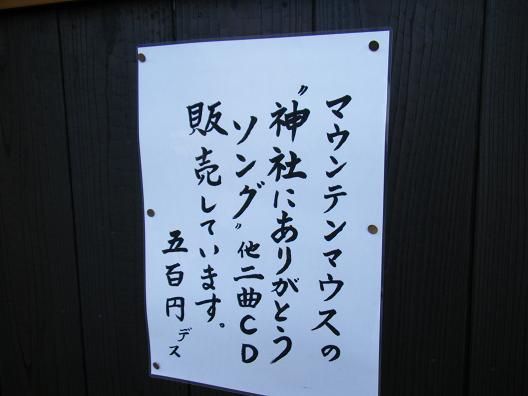 マウンテンマウスの
〝神社にありがとう
ソング〟他二曲CD
販売しています。
五百円デス